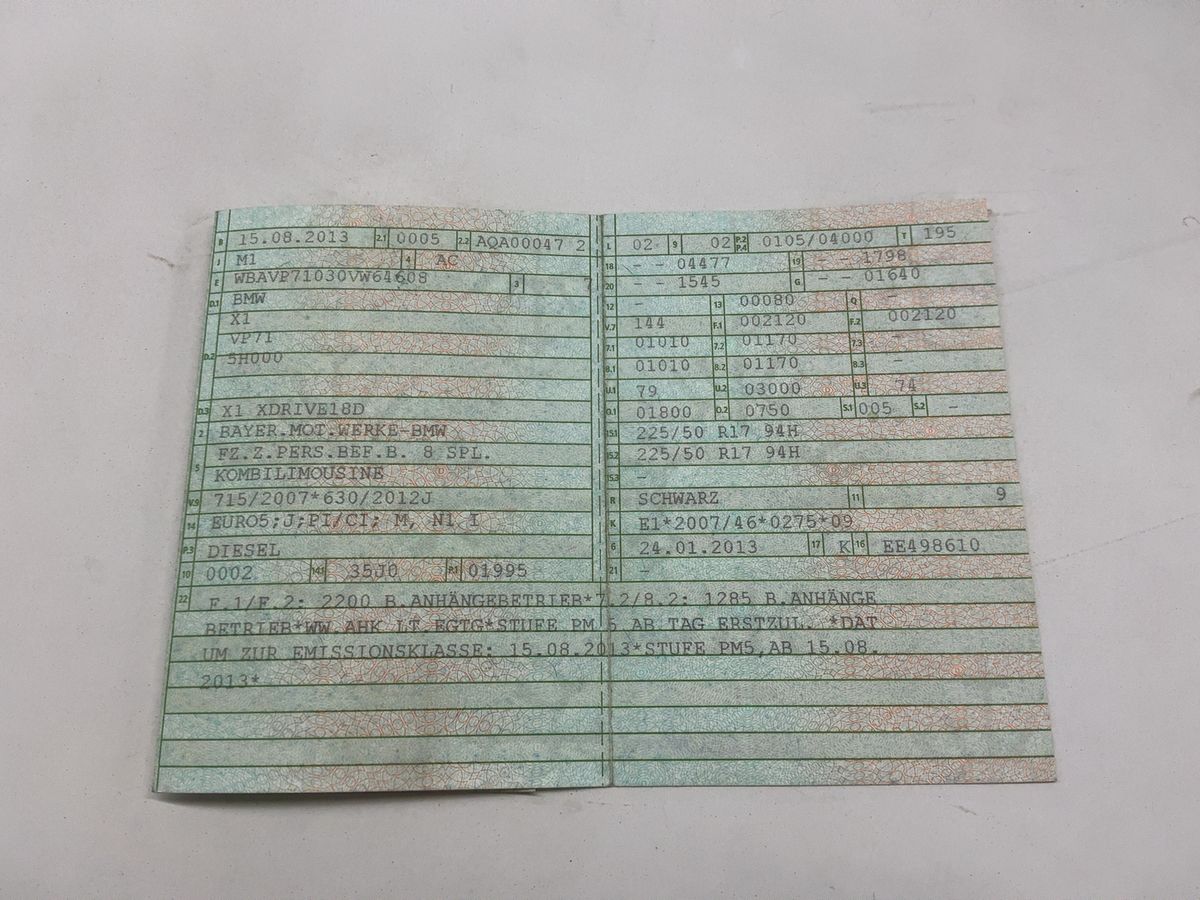 B 15.08.2013 2.1 0005 2.2 AQA00047 2
J M1 4 AC
E WBAVP71030VW64608 3 7
D.1 BMW
X1
VP71
D.2 5H000
D.3 X1 XDRIVE18D
2 BAYER.MOT.WERKE-BMW
FZ.Z.PERS.BEF.B. 8 SPL.
5 KOMBILIMOUSINE
V.9 715/2007*630/2012J
14 EURO5;J;PI/CI; M, N1 I
P.3 DIESEL
10 0002 14.1 35J0 P.1 01995
L 02 9 02 P.2 P.4 0105/04000 T 195
18 - - 04477 19 - - 1798
20 - - 1545 G - - 01640
12 - 13 00080 Q -
V.7 144 F.1 002120 F.2 002120
7.1 01010 7.2 01170 7.3 -
8.1 01010 8.2 01170 8.3 -
U.1 79 U.2 03000 U.3 74
O.1 01800 O.2 0750 S.1 005 S.2 -
15.1 225/50 R17 94H
15.2 225/50 R17 94H
15.3 -
R SCHWARZ 11 9
K E1*2007/46*0275*09
6 24.01.2013 17 K 16 EE498610
21 -
22 F.1/F.2: 2200 B.ANHÄNGEBETRIEB*7.2/8.2: 1285 B.ANHÄNGE
BETRIEB*WW.AHK LT.EGTG*STUFE PM 5 AB TAG ERSTZUL. *DAT
UM ZUR EMISSIONSKLASSE: 15.08.2013*STUFE PM5,AB 15.08.
2013*